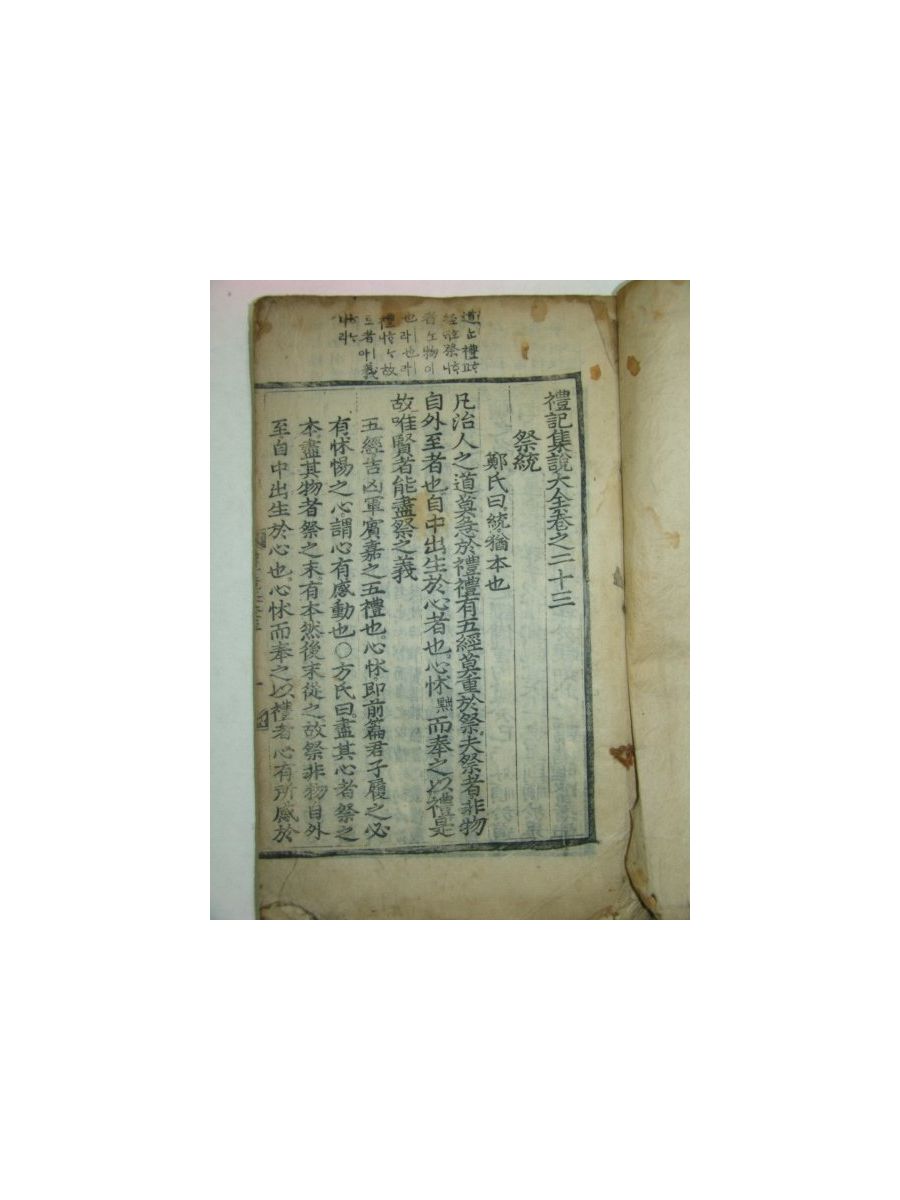 禮記集說大全卷之二十三
祭統
鄭氏曰統猶本也
凡治人之道莫急於禮禮有五經莫重於祭夫祭者非物
自外至者也自中出生於心者也心怵黜而奉之以禮是
故唯賢者能盡祭之義
五經吉凶軍賓嘉之五禮也心怵即前篇君子履之必
有怵惕之心謂心有感動也○方氏曰盡其心者祭之
本盡其物者祭之末有本然後末從之故祭非物自外
至自中出生於心也心怵而奉之以禮者心有所感於